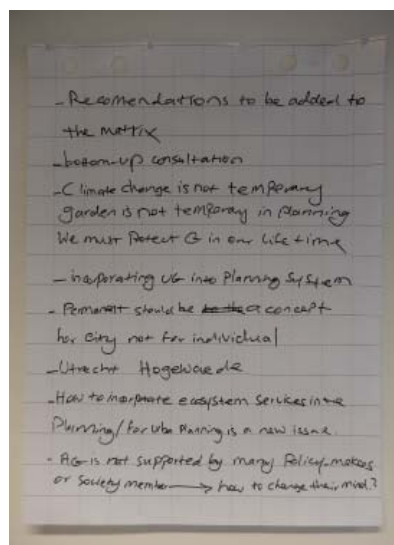 - Recomendations to be added to
the matrix
- bottom-up consultation
- Climate change is not temporary
garden is not temporary in planning
We must Protect G in our life time
- incorporating UG into Planning System
- Permanent should be a concept
for city not for individual
- Utrecht Hogewaerde
- How to incorporate ecosystem services in the
Planning/ for Urba Planning is a new issue.
- AG is not supported by many Policy-makers
or Society member → how to change their mind?